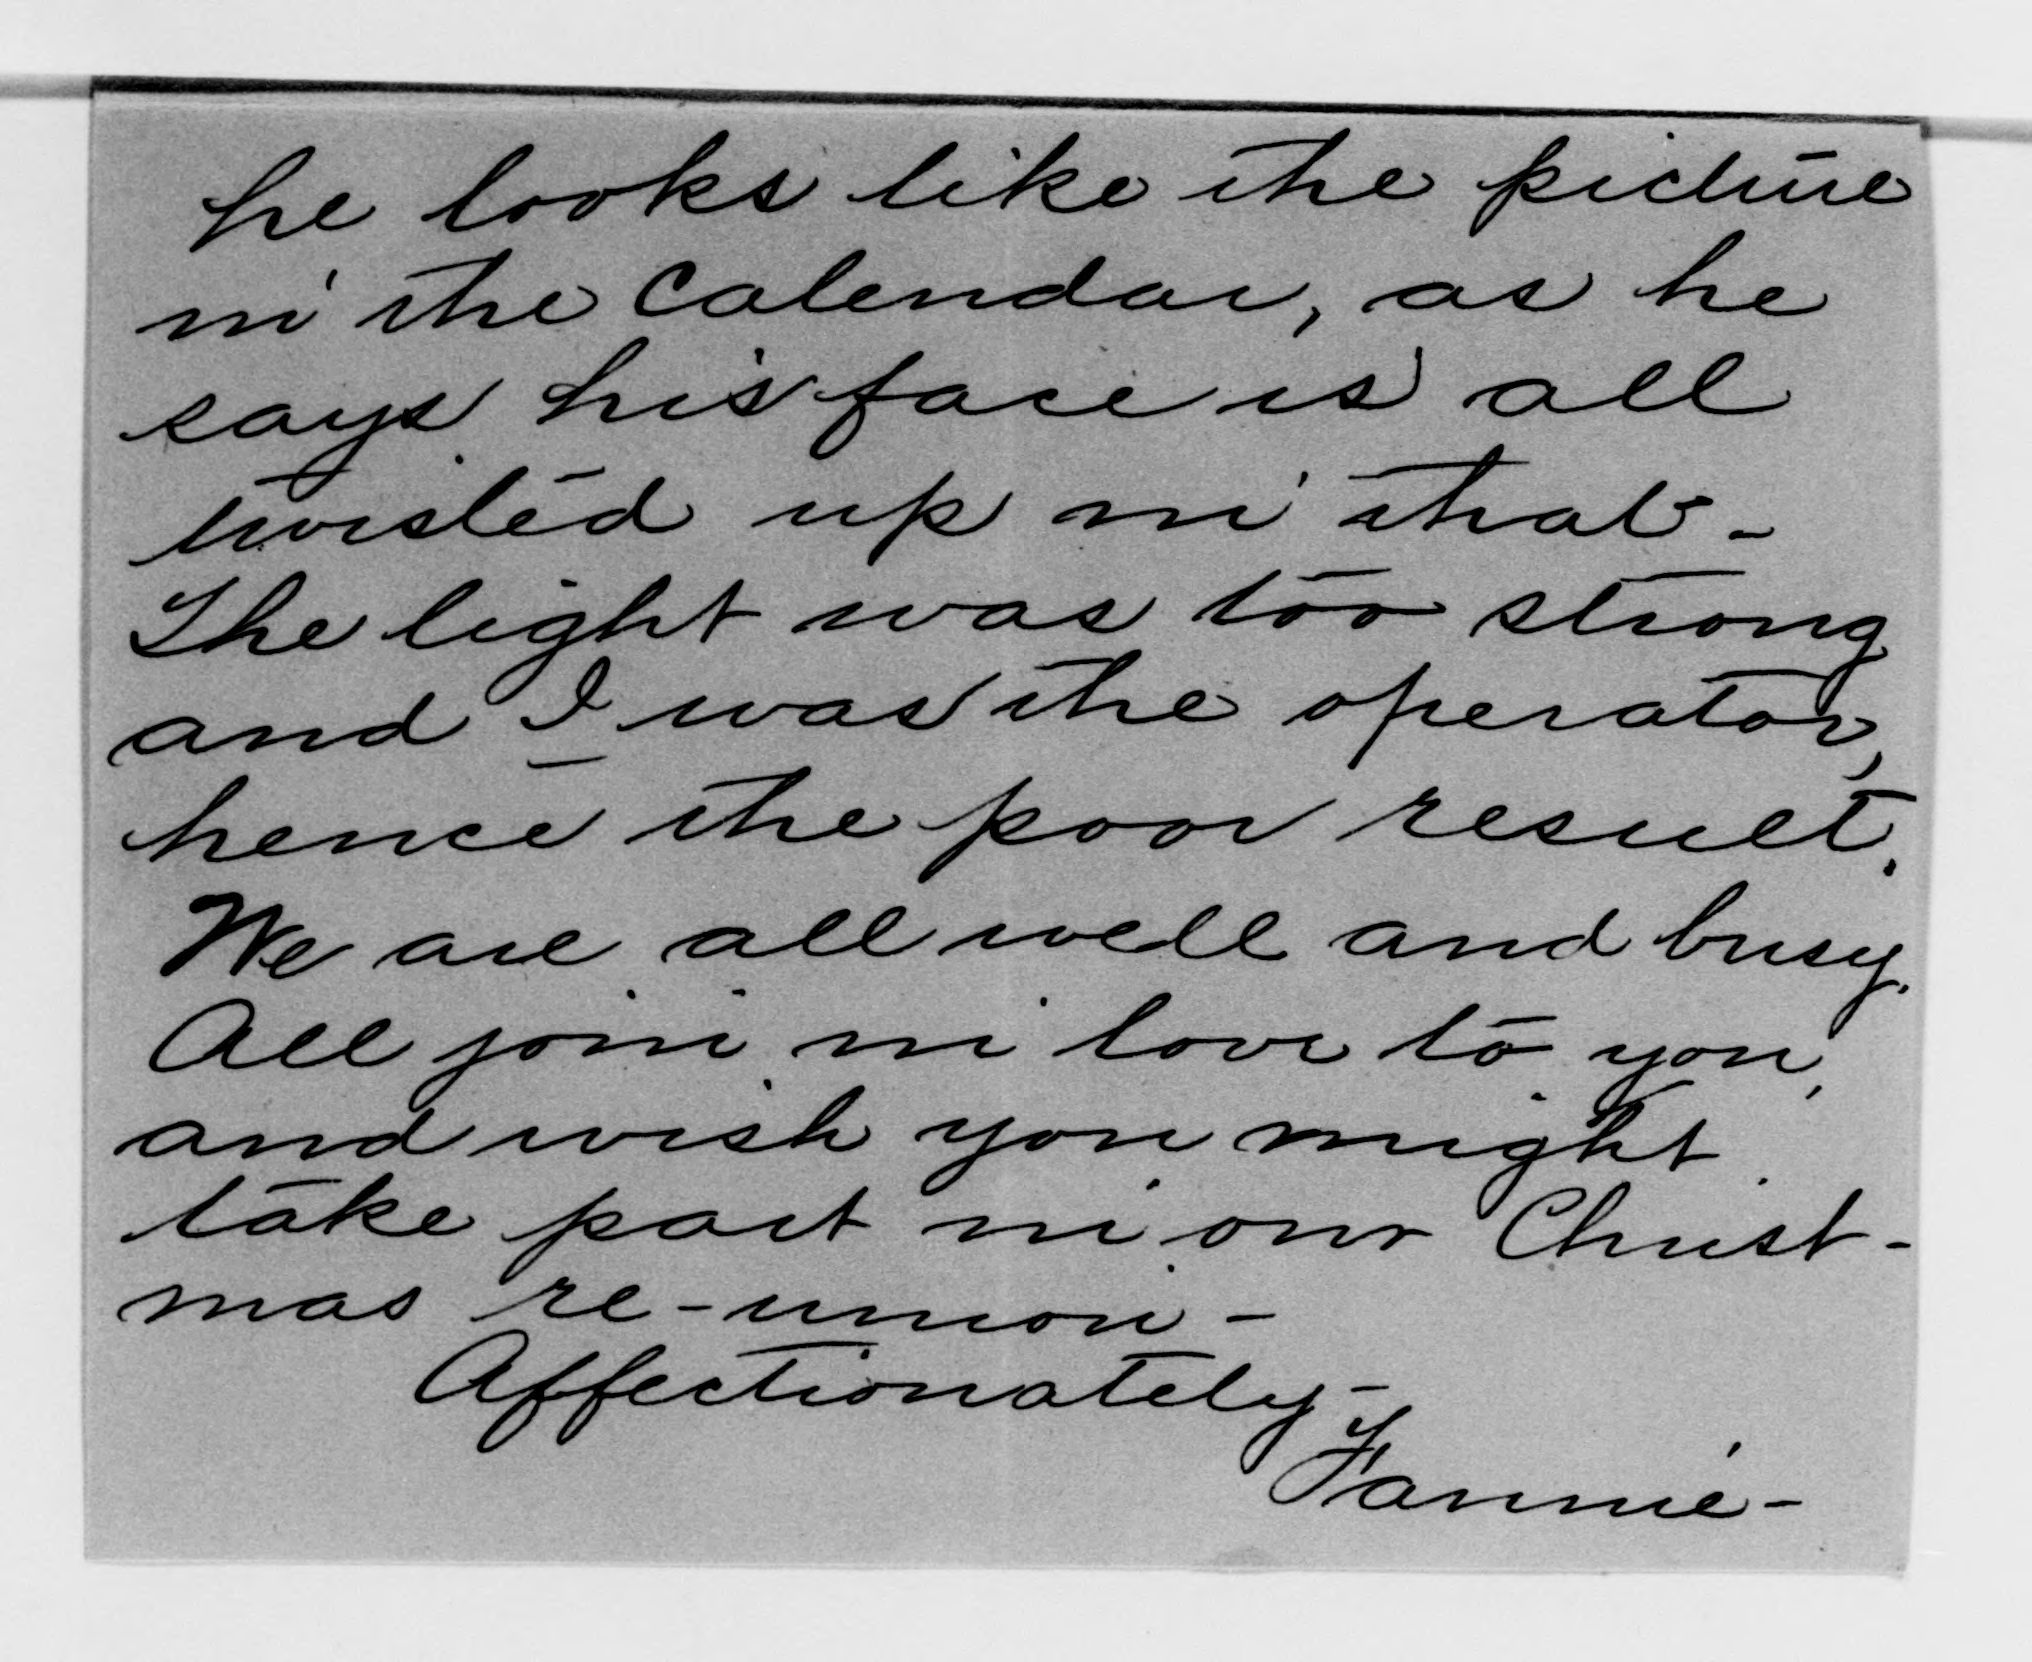 he looks like the picture
in the Calendar, as he
says his face is all
twisted up in that -
The light was too strong
and I was the operator,
hence the poor result.
We are all well and busy.
All join in love to you,
and wish you might
take part in our Christ-
mas re-union -
Affectionately -
Fannie -